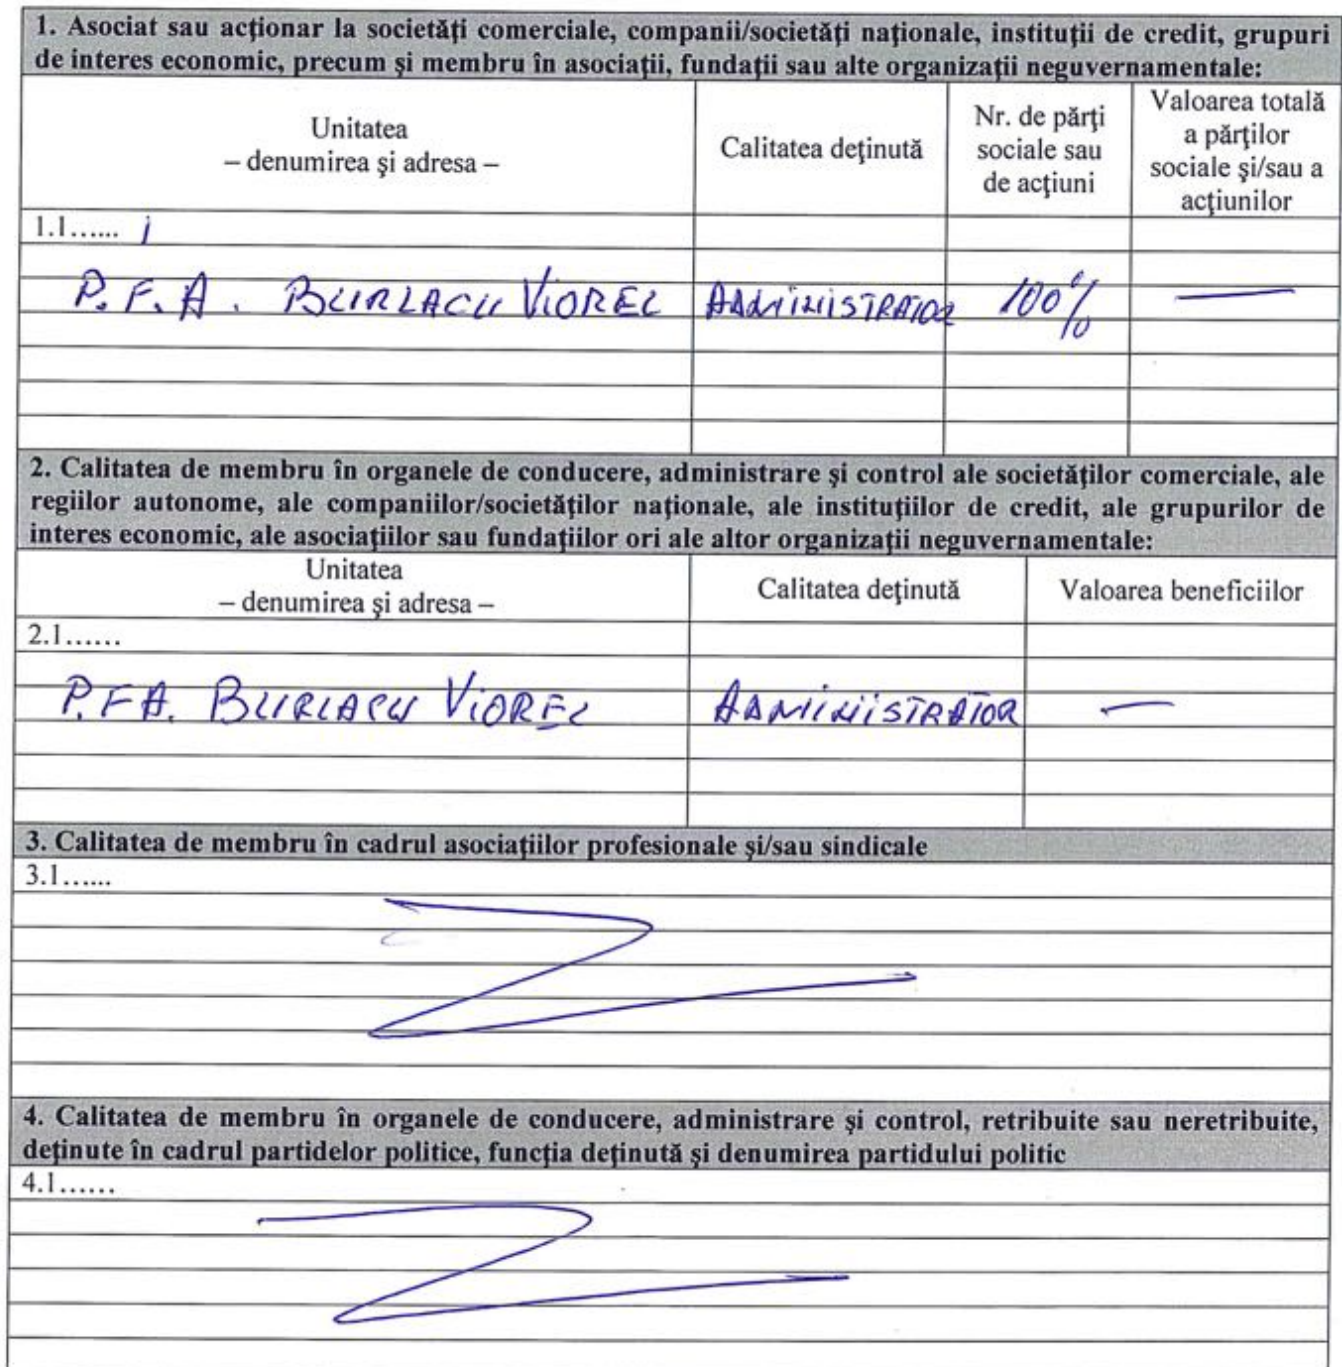 1. Asociat sau acţionar la societăţi comerciale, companii/societăţi naţionale, instituţii de credit, grupuri
de interes economic, precum şi membru în asociaţii, fundaţii sau alte organizaţii neguvernamentale:
Unitatea
– denumirea şi adresa –
Calitatea deţinută
Nr. de părţi
sociale sau
de acţiuni
Valoarea totală
a părţilor
sociale şi/sau a
acţiunilor
1.1......
P.F.A. BURLACU VIOREL ADMINISTRATOR 100% —
2. Calitatea de membru în organele de conducere, administrare şi control ale societăţilor comerciale, ale
regiilor autonome, ale companiilor/societăţilor naţionale, ale instituţiilor de credit, ale grupurilor de
interes economic, ale asociaţiilor sau fundaţiilor ori ale altor organizaţii neguvernamentale:
Unitatea
– denumirea şi adresa –
Calitatea deţinută
Valoarea beneficiilor
2.1......
P.F.A. BURLACU VIOREL ADMINISTRATOR —
3. Calitatea de membru în cadrul asociaţiilor profesionale şi/sau sindicale
3.1......
4. Calitatea de membru în organele de conducere, administrare şi control, retribuite sau neretribuite,
deţinute în cadrul partidelor politice, funcţia deţinută şi denumirea partidului politic
4.1......